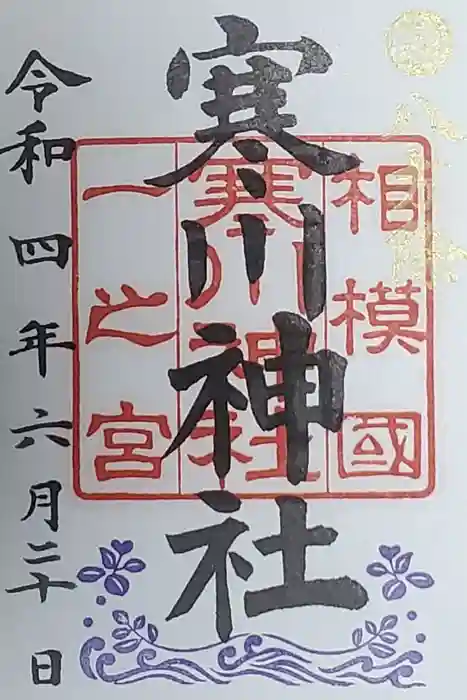 寒川神社
相模國
寒川神社
一之宮
令和四年六月二十日